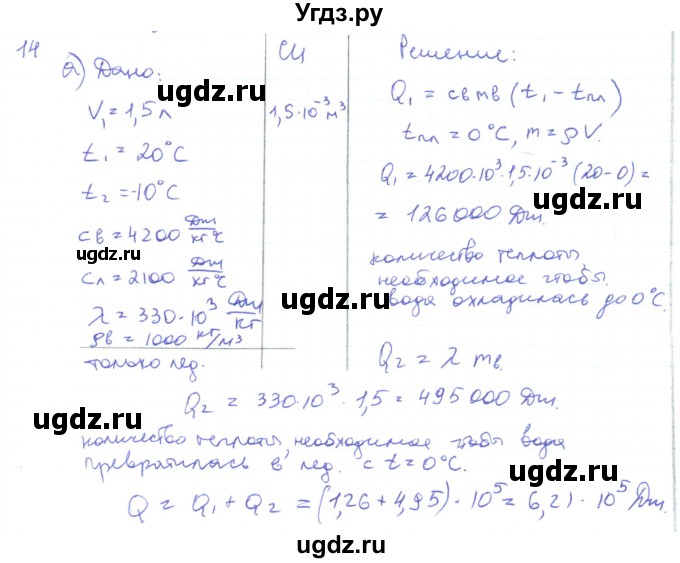 Угдз.ру
14
а) Дано:
V₁ = 1,5 л
t₁ = 20°C
t₂ = -10°C
cв = 4200 Дж/кг°C
cл = 2100 Дж/кг°C
λ = 330·10³ Дж/кг
ρв = 1000 кг/м³
только лед.
СИ
1,5·10⁻³ м³
Решение:
Q₁ = cв mв (t₁ - tпл)
tпл = 0°C, m = ρV.
Q₁ = 4200·10³·1,5·10⁻³ (20-0) =
= 126000 Дж.
количество теплоты
необходимое чтобы
вода охладилась до 0°C.
Q₂ = λ mв
Q₂ = 330·10³·1,5 = 495000 Дж.
количество теплоты, необходимое чтобы вода
превратилась в лед. с t = 0°C.
Q = Q₁ + Q₂ = (1,26 + 4,95)·10⁵ = 6,21·10⁵ Дж.
ugdz.ru
ugdz.ru
ugdz.ru
ugdz.ru
ugdz.ru
ugdz.ru
ugdz.ru
ugdz.ru
ugdz.ru
ugdz.ru
ugdz.ru